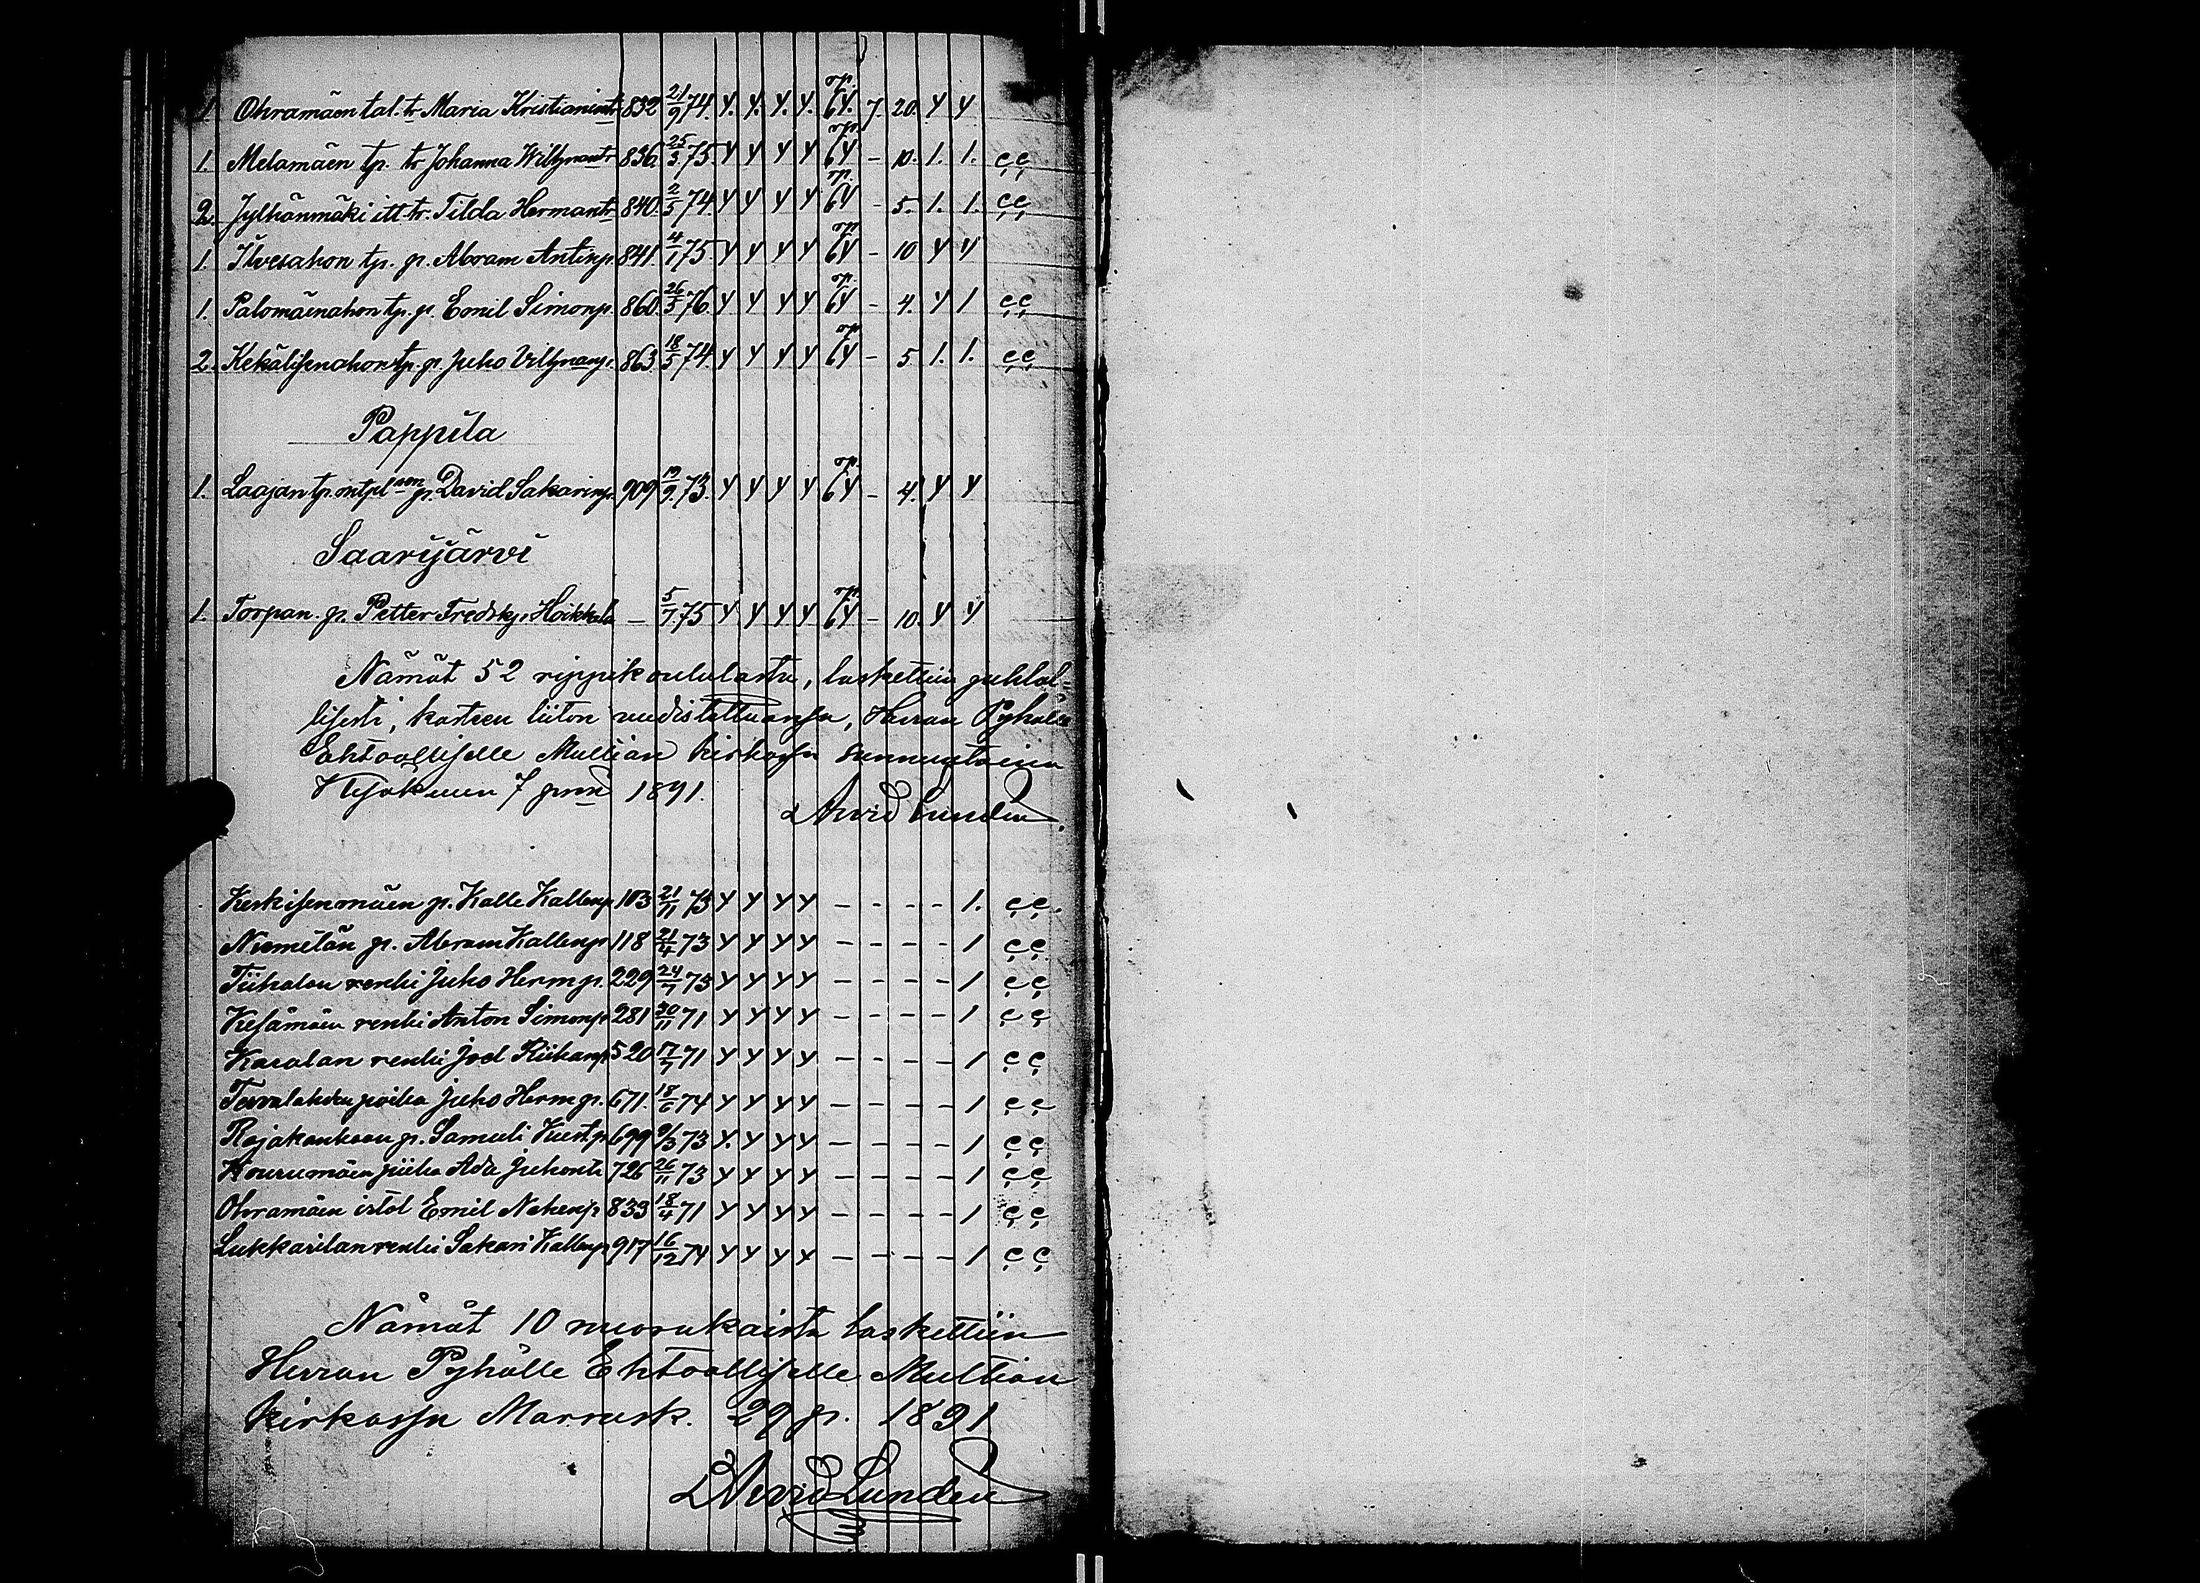 1. Ohramäen tal. tr Maria Kristianintr 832 21/9 74. y. y. y. y. op. 64. 7. 20. y y
1. Melamäen tp. tr Johanna Wilhmantr 836. 25/3 75 y y y y op. 64 – 10. 1. 1. ee
2. Jylhänmäki itt tr. Tilda Hermantr 840. 2/5 74. y y y y op. 64 – 5. 1. 1. ee
1. Ilvesahon tp. p. Abram Antinp. 841. 4/1 75. y y y y op. 64 – 10 y y
1. Palomäenahon tp. p. Emil Simonp. 860. 26/5 76. y y y y op. 64 – 4. y 1 ee
2. Kekälisenahon tp. p. Juho Vilhmanp. 863 18/5 74. y y y y op. 64 – 5 1. 1. ee
Pappila
1. Laajan tp. p. David Sakarinp. 909 19/9. 73. y y y y op. 64 – 4. y y
Saarijärvi
1. Torpan. p. Petter Fredrkp. Hoikkala – 5/7. 75 y y y y op. 64 – 10. y y
Nämät 52 rippikoululasta, laskettiin juhlal-
lisesti, kasteen liiton uudistettuansa, Herran Pyhälle
Ehtoolliselle Multian kirkossa sunnuntaina
Kesäkuun 7 pnä 1891.
Arvid Lundén.
Keskisenmäen p. Kalle Kallenp. 103 21/11 73 y y y y – – – – 1. ee.
Niemelän p. Abram Kallenp. 118 21/4 73 y y y y – – – – 1 ee
Tiihalan renki Juho Herm p. 229 24/7 73 y y y y – – – – 1 ee
Kesämäen renki Anton Simonp. 281 30/11 71 y y y y – – – – 1 ee
renki Joel Riikanp. 520 17/7 71 y y y y – – – – 1 ee
Tervalahden poika Juho Herm p. 671. 18/6 74 y y y y – – – – 1 ee
Rajakankaan p. Samuli Kustp. 699 9/3 73 y. y y y – – – – 1 ee
Kourumäen piika Ada Juhontr 726 26/11 73 y y y y – – – – 1 ee
Ohramäen istol Emil 833 18/4 71 y y y y – – – – 1 ee
Lukkarilan renki Sakari Kallenp. 917 16/12 74 y y y y – – – – 1 ee
Nämät 10 nuorukaista laskettiin
Herran Pyhälle Ehtoolliselle Multian
kirkossa Marrask. 29 p. 1891
Arvid Lundén